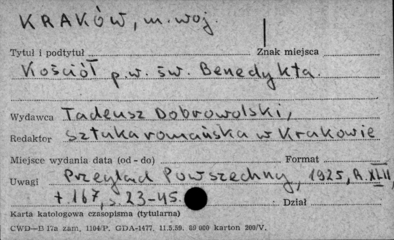 KRAKÓW, m. woj.
Tytuł i podtytuł Znak miejsca
Kościół p.w. św. Benedykta.
Wydawca Tadeusz Dobrowolski,
Redaktor Sztuka romańska w Krakowie
Miejsce wydania data (od - do) Format
Uwagi Przegląd Powszechny, 1925, R. XLII,
t. 167, s. 23-45. Dział
Karta katologowa czasopisma (tytularna)
CWD—D 17a zam, 1104/P. GDA-1477, 11.5.59. 60 000 karton 200/V.